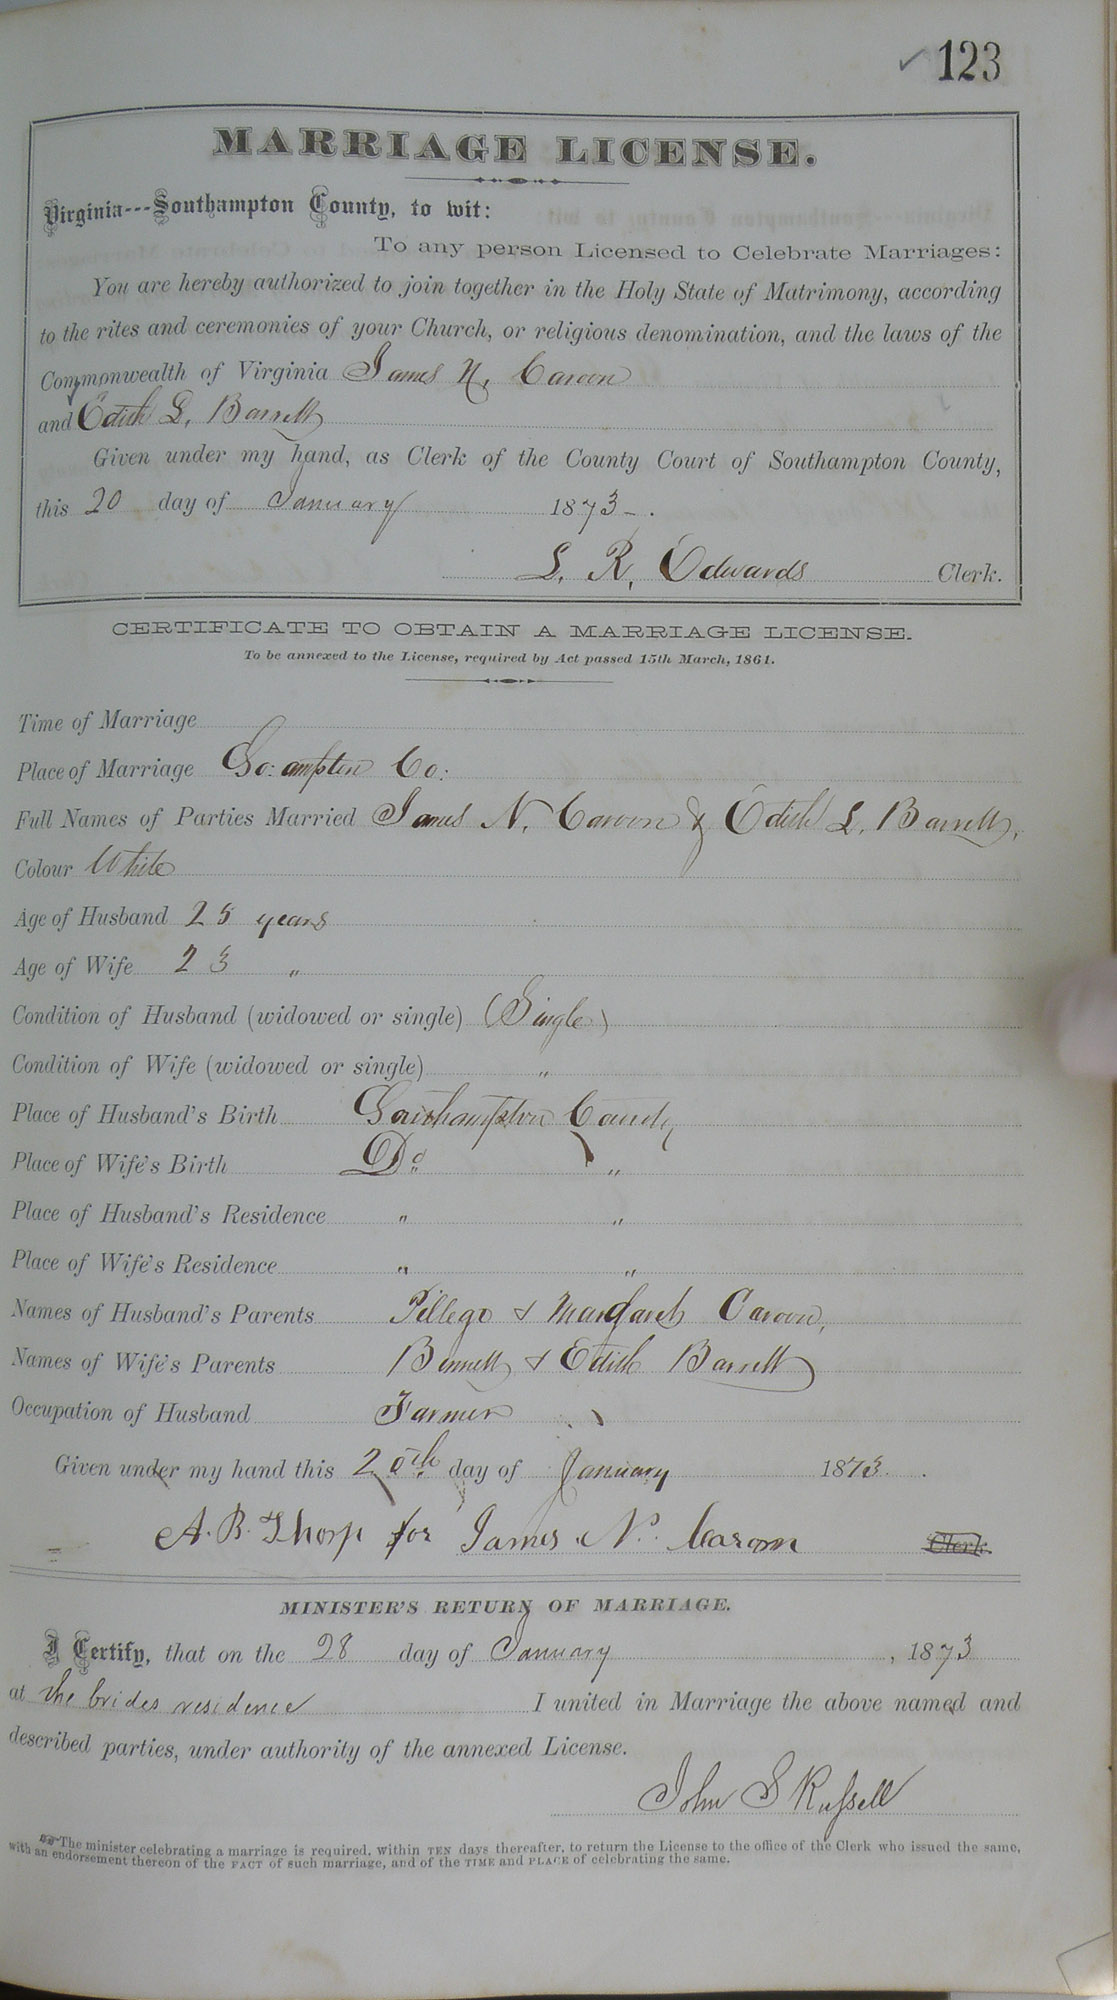 ✓ 123
MARRIAGE LICENSE.
Virginia---Southampton County, to wit:
To any person Licensed to Celebrate Marriages:
You are hereby authorized to join together in the Holy State of Matrimony, according
to the rites and ceremonies of your Church, or religious denomination, and the laws of the
Commonwealth of Virginia James N. Caroon
and Edith L. Barrett
Given under my hand, as Clerk of the County Court of Southampton County,
this 20 day of January 1873-.
L. R. Edwards Clerk.
CERTIFICATE TO OBTAIN A MARRIAGE LICENSE.
To be annexed to the License, required by Act passed 15th March, 1861.
Time of Marriage
Place of Marriage So:ampton Co:
Full Names of Parties Married James N. Caroon & Edith L. Barrett,
Colour White
Age of Husband 25 years
Age of Wife 23 "
Condition of Husband (widowed or single) (Single)
Condition of Wife (widowed or single) "
Place of Husband's Birth Southampton County
Place of Wife's Birth Do "
Place of Husband's Residence " "
Place of Wife's Residence " "
Names of Husband's Parents & Margaret Caroon,
Names of Wife's Parents Bennett & Edith Barrett
Occupation of Husband Farmer
Given under my hand this 20th day of January 1873.
A. B. Thorp for James N. Caroon Clerk.
MINISTER'S RETURN OF MARRIAGE.
I Certify, that on the 28 day of January, 1873
at the brides residence I united in Marriage the above named and
described parties, under authority of the annexed License.
John S Russell
The minister celebrating a marriage is required, within TEN days thereafter, to return the License to the office of the Clerk who issued the same,
with an endorsement thereon of the FACT of such marriage, and of the TIME and PLACE of celebrating the same.